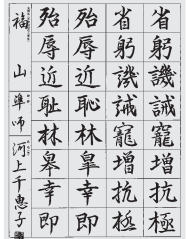 省躬譏誡寵增抗極
省躬譏誡寵增抗極
殆辱近恥林皐幸即
殆辱近耻林皐幸即
福山 準師 河上千恵子